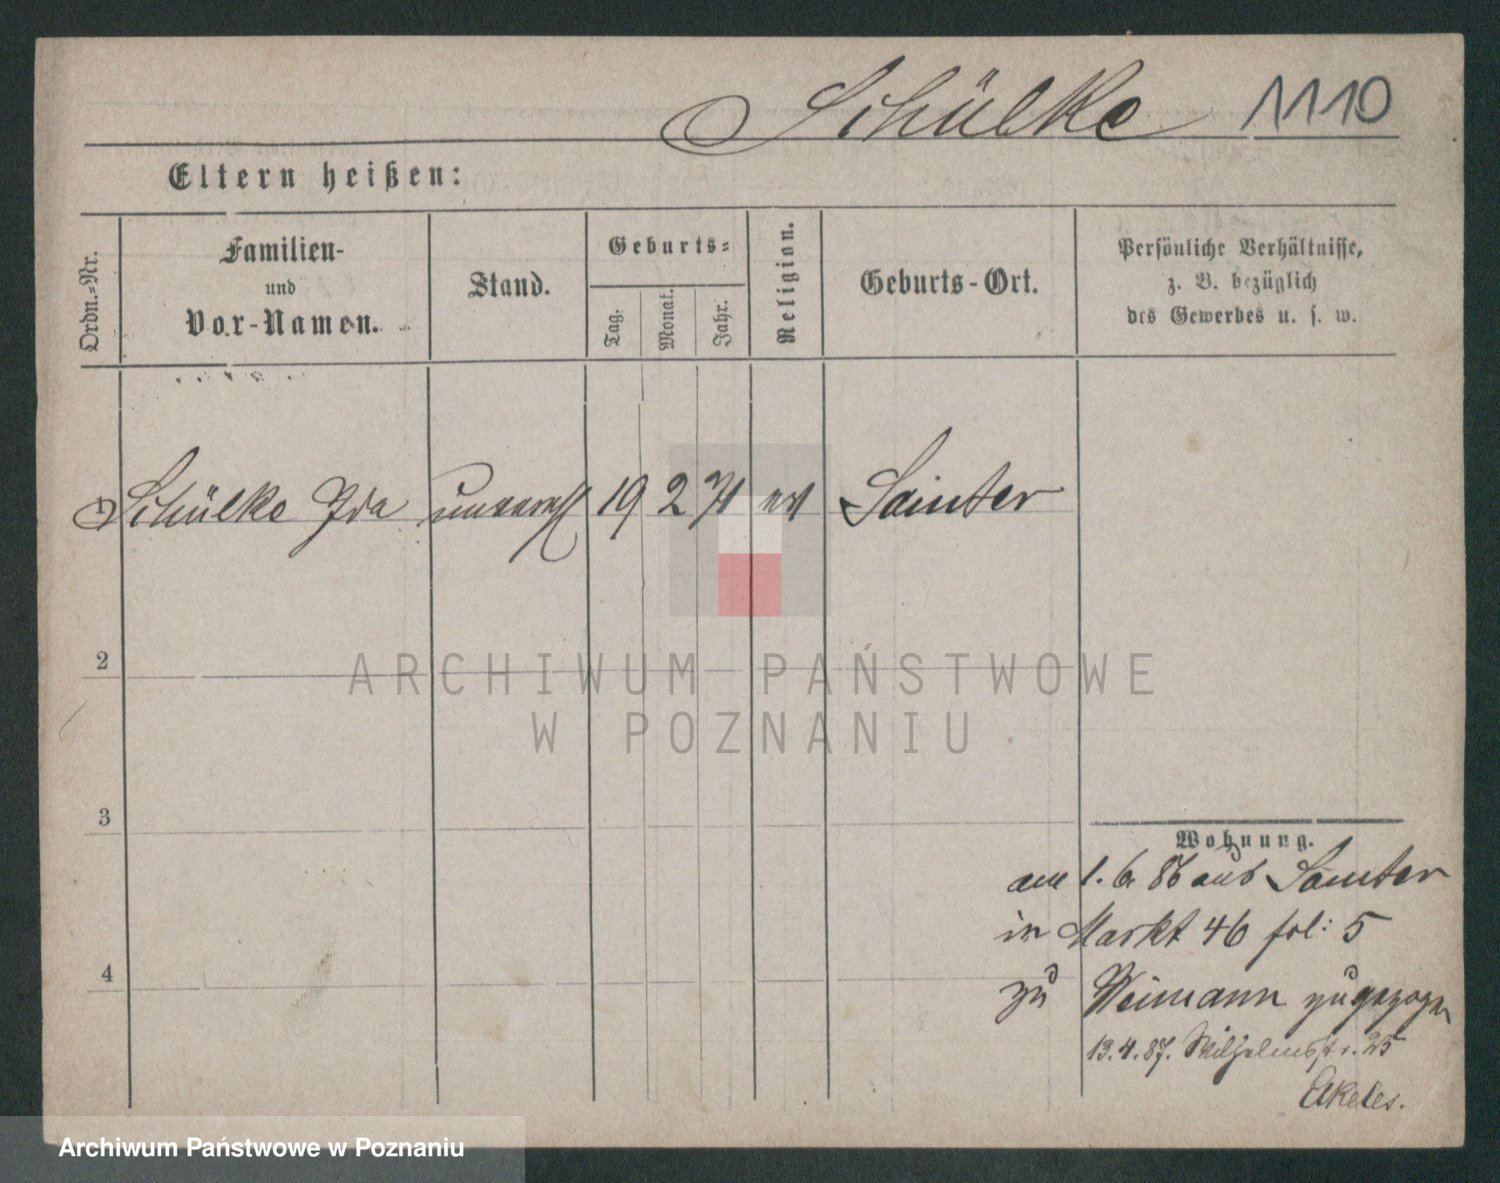 Schülke 1110
Eltern heißen:
Ordn.-Nr.
Familien-
und
Vor-Namen.
Stand.
Geburts-
Tag.
Monat.
Jahr.
Religion.
Geburts-Ort.
Persönliche Verhältnisse,
z. B. bezüglich
des Gewerbes u. s. w.
1 Schülke Ida 19 2 71 Samter
2
3
4
Wohnung.
am 1. 6. 86 aus Samter
in Markt 46 fol: 5
zu Weimann zugezogen
13.4.87. Wilhelmstr. 25
Akeles.
ARCHIWUM PAŃSTWOWE
W POZNANIU
Archiwum Państwowe w Poznaniu